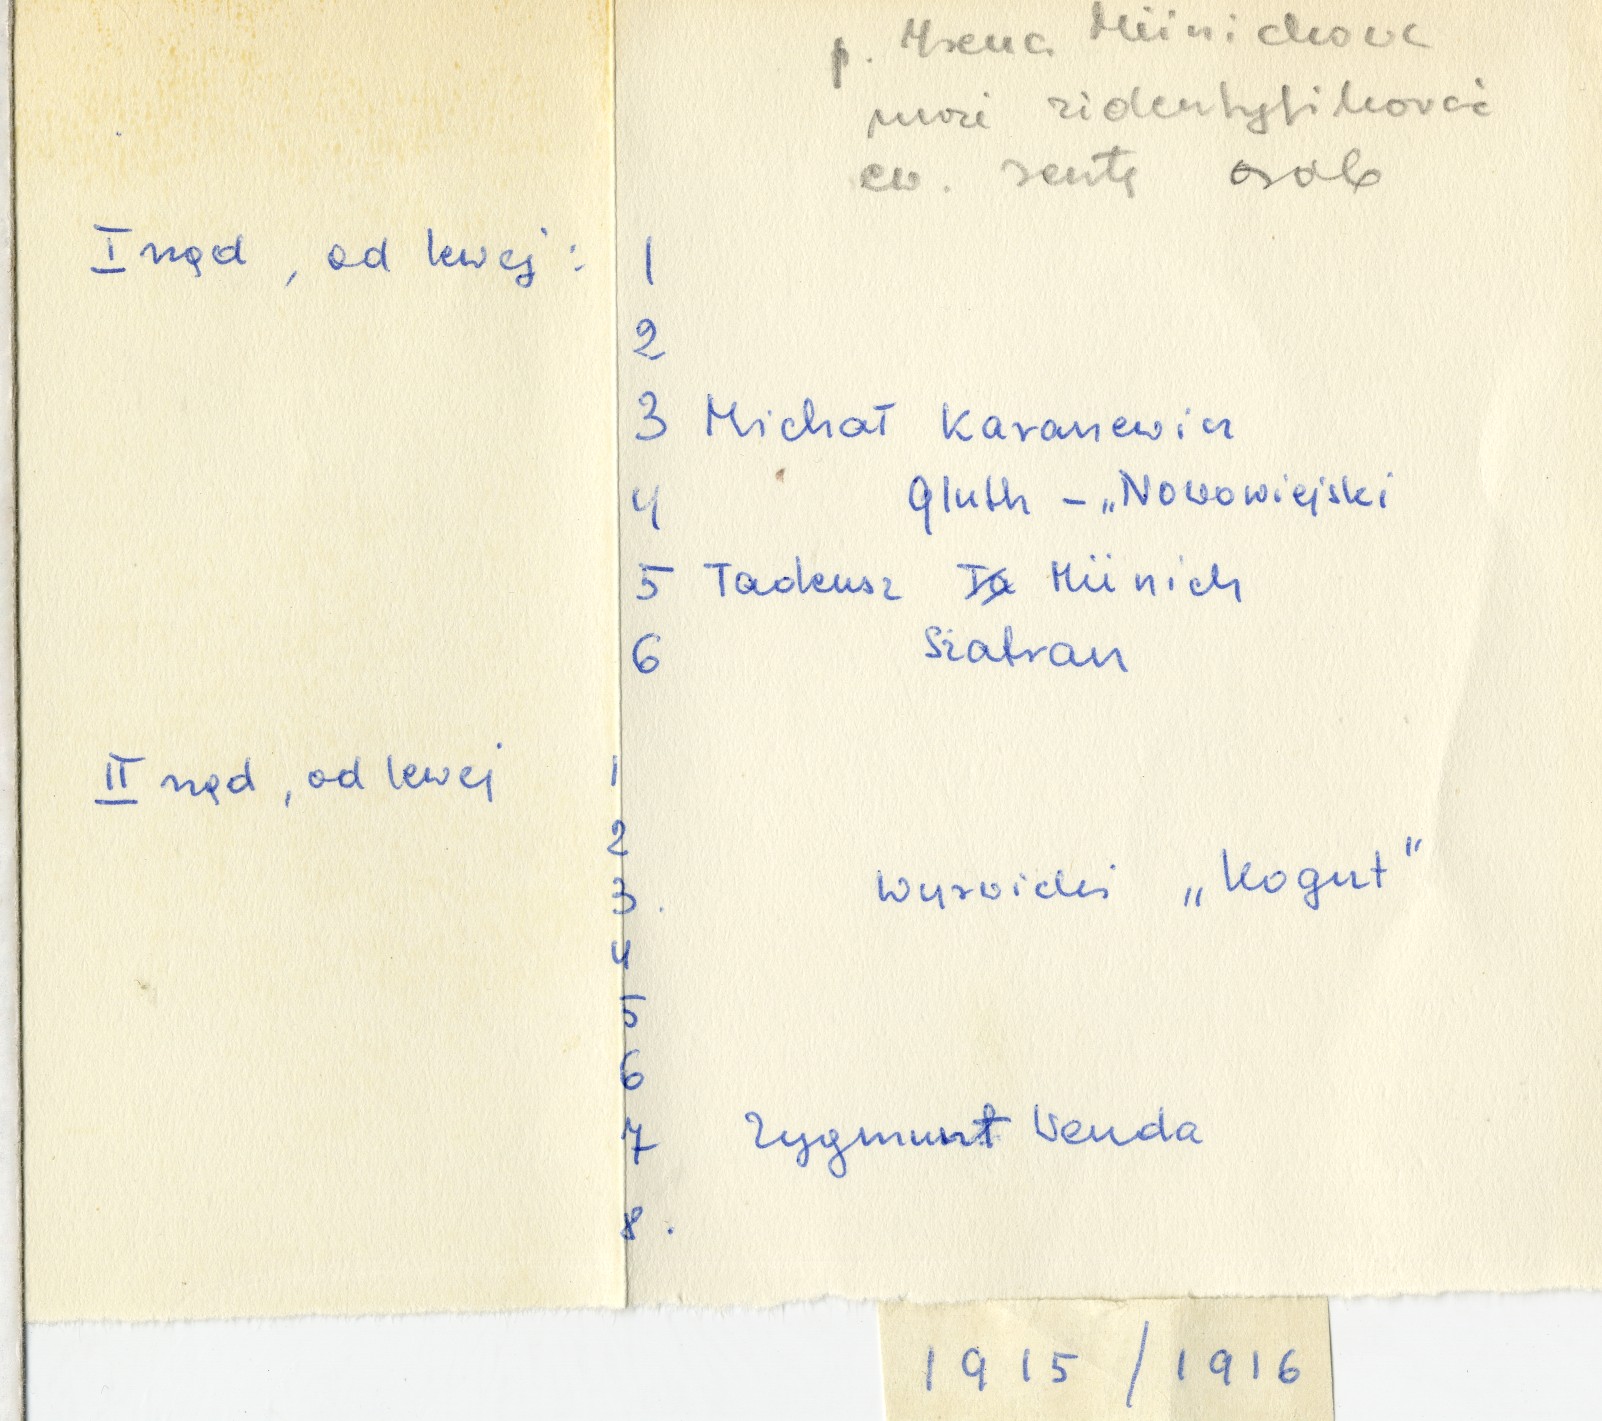 p. Irena Münichowa
może zidentyfikować
ew. resztę osób
I rząd, od lewej: 1
2
3 Michał Karasiewicz
4 Gluth - „Nowowiejski
5 Tadeusz Ta Münich
6 Szafran
II rząd, od lewej 1
2
3. Wyrwicki „Kogut"
4
5
6
7 Zygmunt Wenda
8.
1915/1916